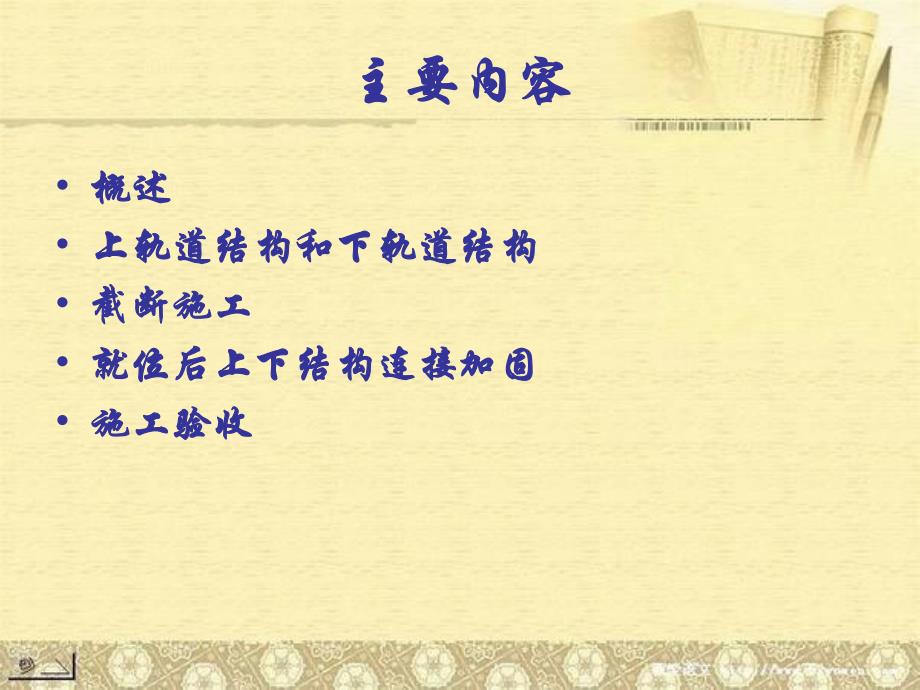 主要内容
• 概述
• 上轨道结构和下轨道结构
• 截断施工
• 就位后上下结构连接加固
• 施工验收